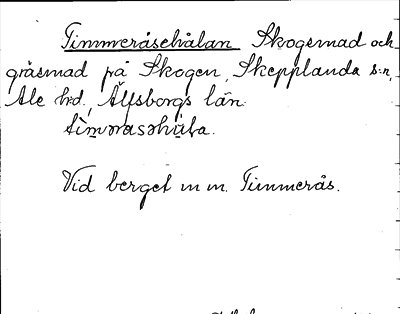 Timmeråsehålan Skogsmad och
gräsmad på Skogen, Skepplanda s:n,
Ale hd., Älfsborgs län.
Vid berget m m. Timmerås.